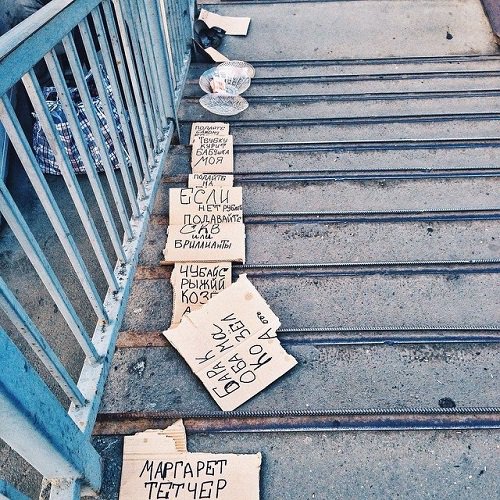 ПОДАЙТЕ
ТРУБКУ
КУРИТ
БАБУШКА
МОЯ
ПОДАЙТЕ
НА
ЕСЛИ
НЕТ РУБЛЕЙ
ПОДАВАЙТЕ
СКВ
ИЛИ
БРИЛЛИАНТЫ
ЧУБАЙС
РЫЖИЙ
КОЗЕ
БАРАК
ОБАМА
КОЗЕЛ
МАРГАРЕТ
ТЕТЧЕР